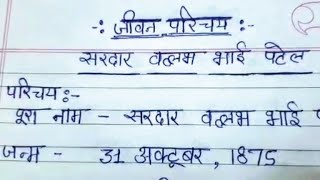 -: जीवन परिचय :-
सरदार वल्लभ भाई पटेल
परिचय :-
पूरा नाम - सरदार वल्लभ भाई
जन्म - 31 अक्टूबर, 1875